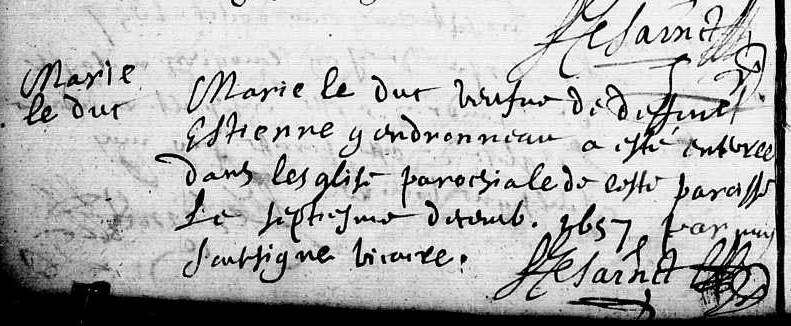 Marie
le duc
Marie le duc veufue de deffunct
Estienne gendronneau a esté enterree
dans lesglise parochiale de ceste paroisse
Le septiesme decemb. 1657 par moy
soussigne vicaire.